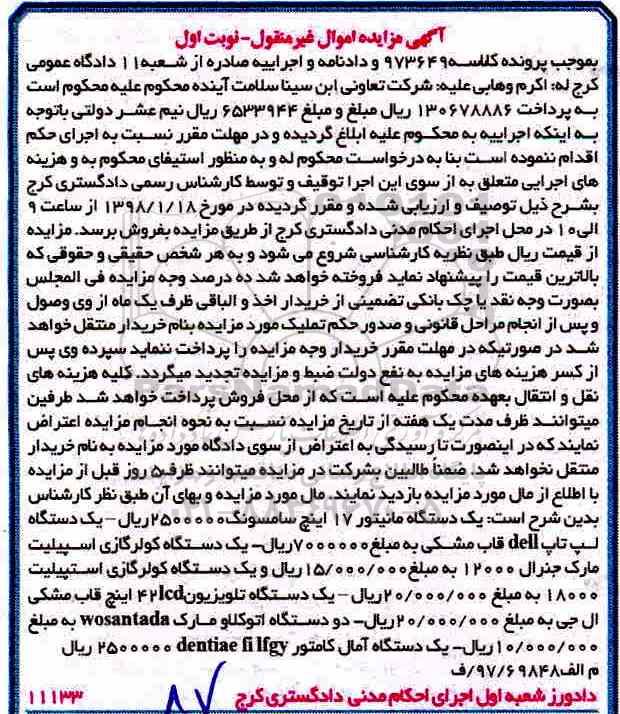 آگهی مزایده اموال غیرمنقول-نوبت اول
بموجب پرونده کلاسه ۹۷۳۶۴۹ و دادنامه و اجراییه صادره از شعبه ۱۱ دادگاه عمومی
کرج له: اکرم وهابی علیه: شرکت تعاونی ابن سینا سلامت آینده محکوم علیه محکوم است
به پرداخت ۱۳۰۶۷۸۸۸۶ ریال مبلغ و مبلغ ۶۵۳۳۹۴۴ ریال نیم عشر دولتی باتوجه
به اینکه اجراییه به محکوم علیه ابلاغ گردیده و در مهلت مقرر نسبت به اجرای حکم
اقدام ننموده است بنا به درخواست محکوم له و به منظور استیفای محکوم به و هزینه
های اجرایی متعلق به از سوی این اجرا توقیف و توسط کارشناس رسمی دادگستری کرج
بشرح ذیل توصیف و ارزیابی شده و مقرر گردیده در مورخ ۱۳۹۸/۱/۱۸ از ساعت ۹
الی ۱۰ در محل اجرای احکام مدنی دادگستری کرج از طریق مزایده بفروش برسد. مزایده
از قیمت ریال طبق نظریه کارشناسی شروع می شود و به هر شخص حقیقی و حقوقی که
بالاترین قیمت را پیشنهاد نماید فروخته خواهد شد ده درصد وجه مزایده فی المجلس
بصورت وجه نقد یا چک بانکی تضمینی از خریدار اخذ و الباقی ظرف یک ماه از وی وصول
و پس از انجام مراحل قانونی و صدور حکم تملیک مورد مزایده بنام خریدار منتقل خواهد
شد در صورتیکه در مهلت مقرر خریدار وجه مزایده را پرداخت ننماید سپرده وی پس
از کسر هزینه های مزایده به نفع دولت ضبط و مزایده تجدید میگردد. کلیه هزینه های
نقل و انتقال بعهده محکوم علیه است که از محل فروش پرداخت خواهد شد طرفین
میتوانند ظرف مدت یک هفته از تاریخ مزایده نسبت به نحوه انجام مزایده اعتراض
نمایند که در اینصورت تا رسیدگی به اعتراض از سوی دادگاه مورد مزایده به نام خریدار
منتقل نخواهد شد. ضمناً طالبین بشرکت در مزایده میتوانند ظرف ۵ روز قبل از مزایده
با اطلاع از مال مورد مزایده بازدید نمایند. مال مورد مزایده و بهای آن طبق نظر کارشناس
بدین شرح است: یک دستگاه مانیتور ۱۷ اینچ سامسونگ ۲۵۰۰۰۰۰ ریال – یک دستگاه
لپ تاپ dell قاب مشکی به مبلغ ۷۰۰۰۰۰۰ ریال- یک دستگاه کولرگازی اسپیلیت
مارک جنرال ۱۲۰۰۰ به مبلغ ۱۵/۰۰۰/۰۰۰ ریال و یک دستگاه کولرگازی استپیلیت
۱۸۰۰۰ به مبلغ ۲۰/۰۰۰/۰۰۰ ریال – یک دستگاه تلویزیون ۴۲lcd اینچ قاب مشکی
ال جی به مبلغ ۲۰/۰۰۰/۰۰۰ ریال- دو دستگاه اتوکلاو مارک wosantada به مبلغ
۱۰/۰۰۰/۰۰۰ ریال- یک دستگاه آمال کامتور dentiae fi lfgy ۲۵۰۰۰۰۰ ریال
م الف ۹۷/۶۹۸۴۸/ف
دادورز شعبه اول اجرای احکام مدنی دادگستری کرج ۱۱۱۳۳
۸۷